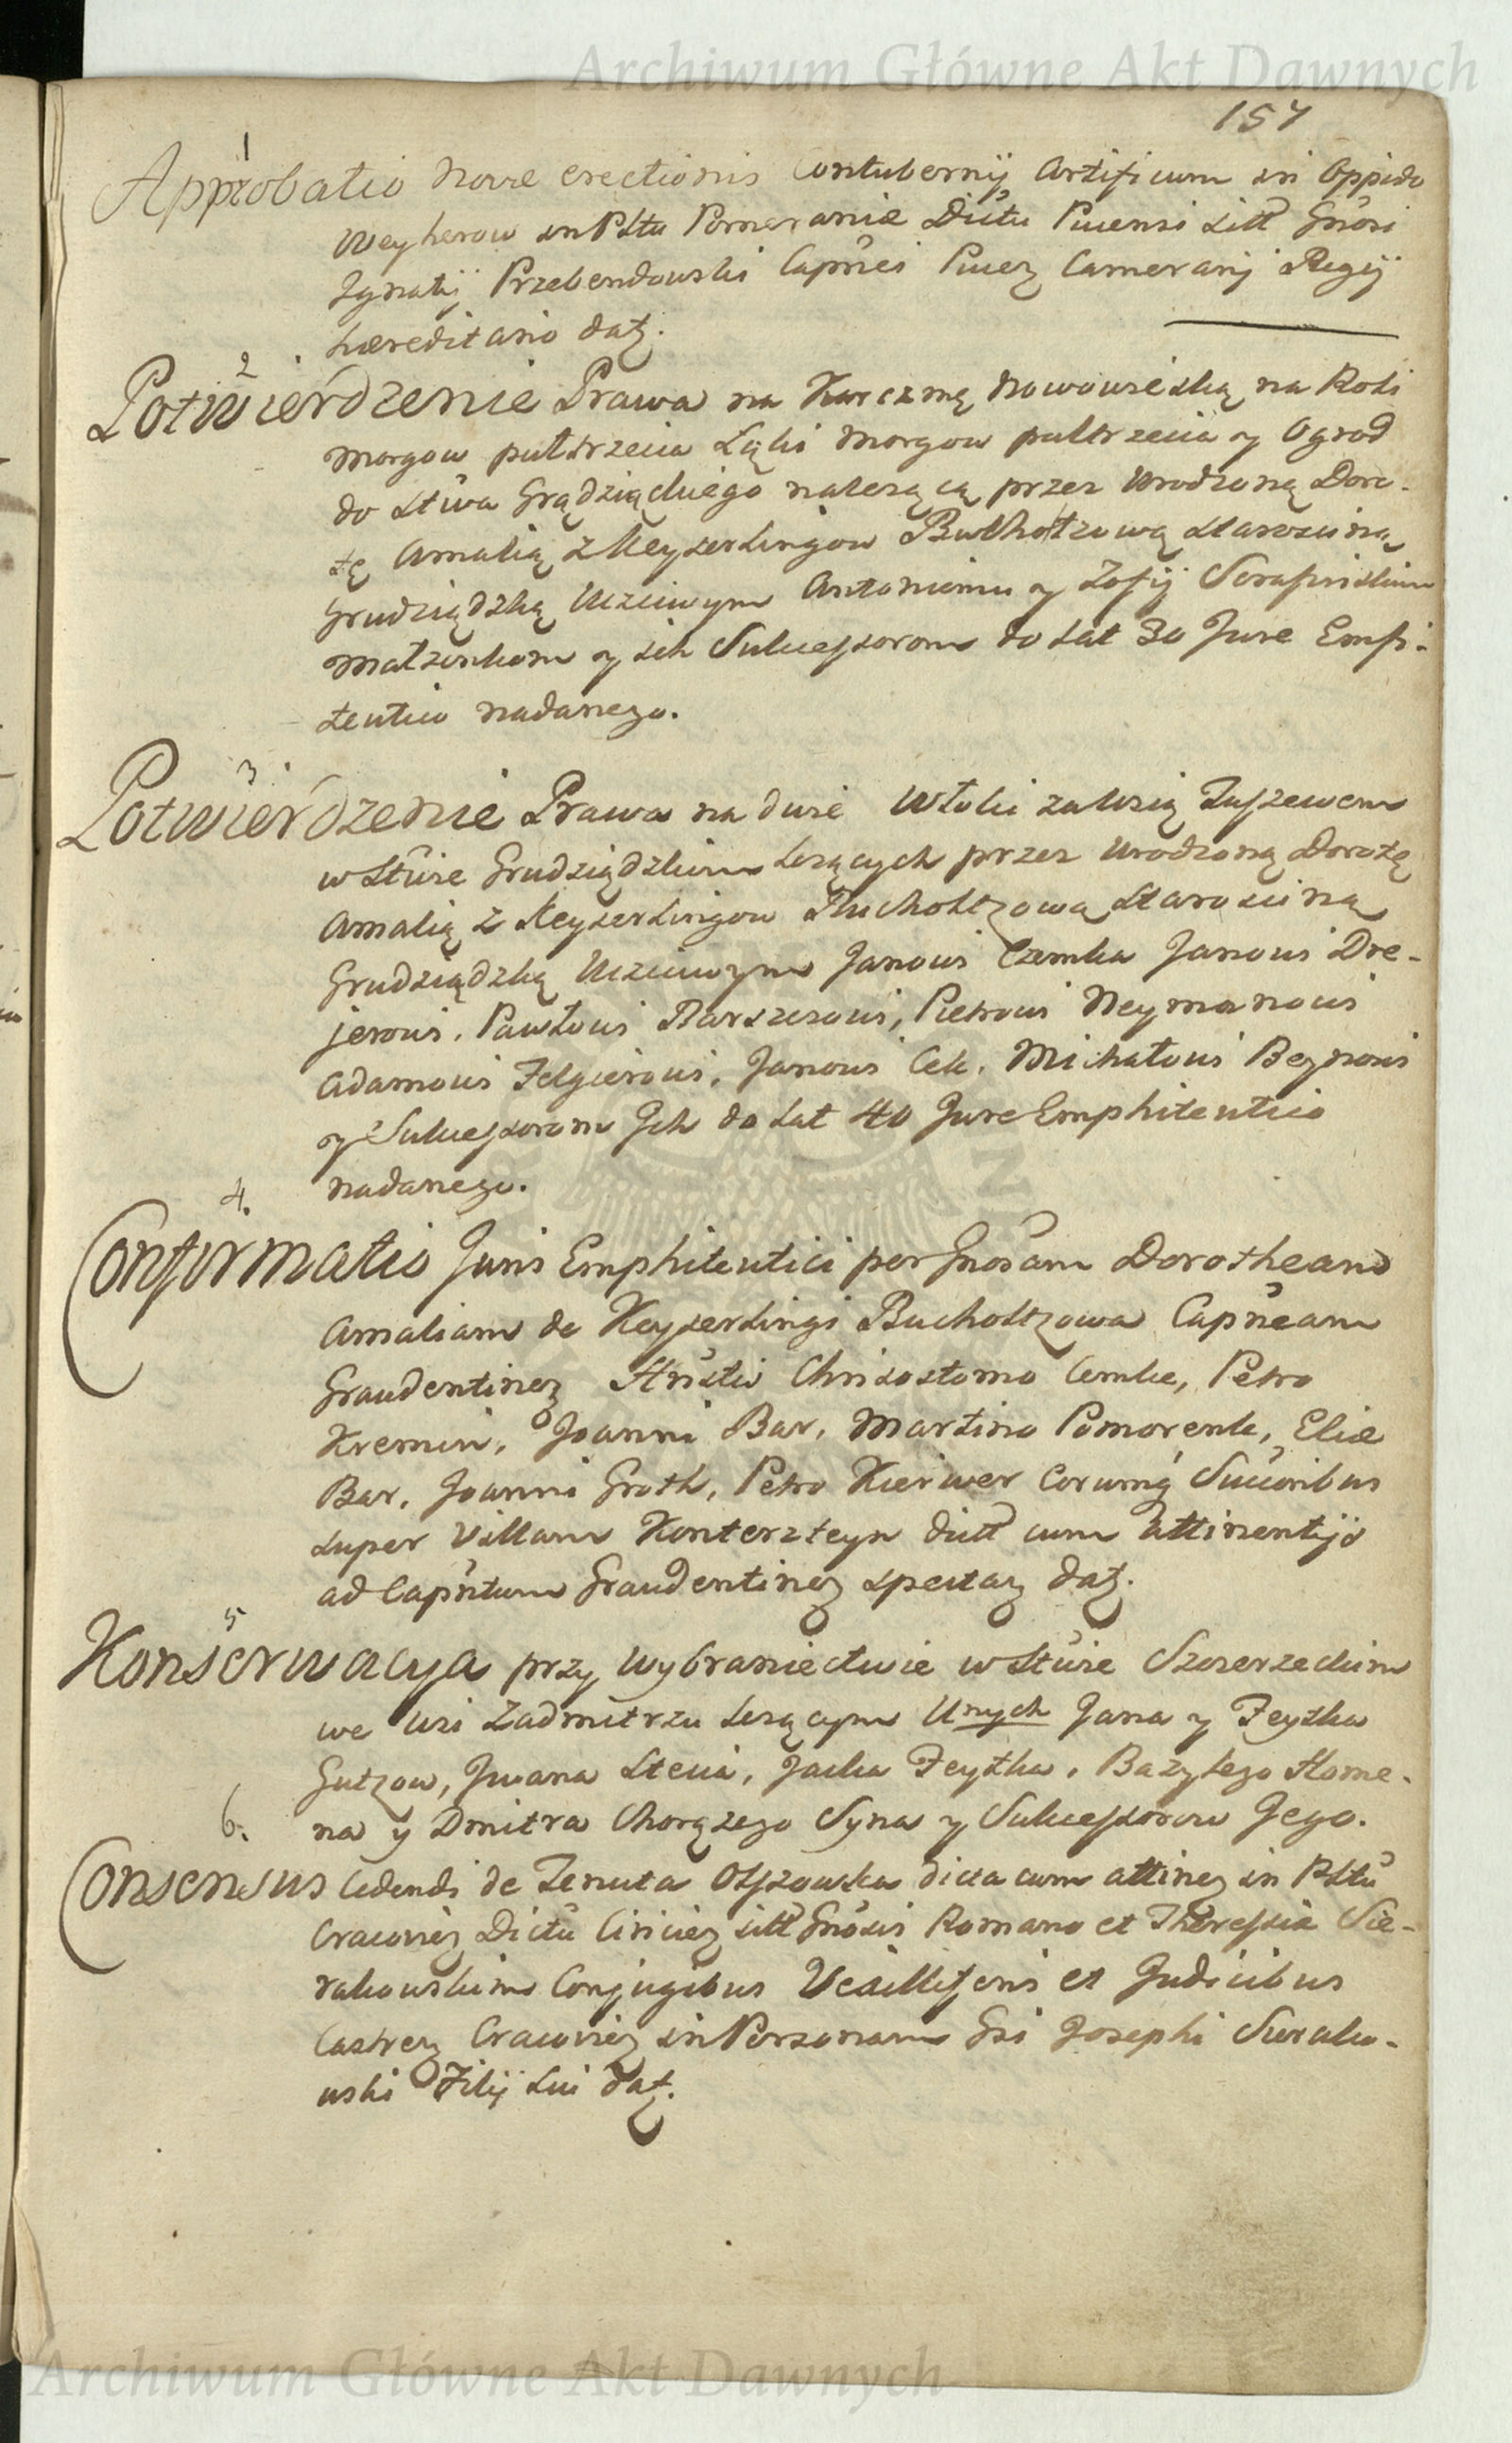 Archiwum Główne Akt Dawnych
157
1
Approbatio novæ erectionis Contubernij Artificum in Oppido
Weyherow in Pttu Pomeraniæ Dictu Pucensi sitt Gnosi
Ignatij Przebendowski Capnei Pucez Camerarij Regij
hæreditario datz.
2.
Potwierdzenie Prawa na Karczmę Nowowieską na Roli
Morgow pułtrzecia Łąki Morgow pułtrzecia y Ogrod
do Stwa Grądziąckiego należącą przez Urodzoną Doro-
tę Amalią z Keyserlingow Buchołtzową Starościną
Grudziądzką Uczciwym Antoniemu y Zofij Serafinskim
Małżonkom y ich Sukcessorom do lat 30 Jure Emfi-
teutico nadanego.
3.
Potwierdzenie Prawa na dwie Włoki za Wsią Tuszewem
w Stwie Grudziądzkim leżących przez Urodzoną Dorotę
Amalią z Keyserlingow Bucholtzową Starościną
Grudziądzką Uczciwym Janowi Czemka Janowi Dre-
jerowi, Pawłowi Barszczowi, Piotrowi Neymanowi
Adamowi Felgierowi, Janowi Cek, Michałowi Beynowi
y Sukcessorom Jch do lat 40 Jure Emphiteutico
nadanego.
4.
Confirmatio Juris Emphiteutici per Gnosam Dorotheam
Amaliam de Keyserlingi Bucholtzowa Capneam
Graudentinez Hnsto Chrisostomo Cemke, Petro
Kremin, Joanni Bar, Martino Pomorenk, Eliæ
Bar, Joanni Groth, Petro Kierwer eorumq Succoribus
super Villam Konterszteyn dictt cum attinentijs
ad Capntum Graudentinez spectaz datz.
5
Konserwacya przy Wybraniectwie w Stwie Szczerzeckim
we Wsi Zadmitrzu leżącym Unych Jana y Feytka
Gutzow, Jwana Stecia, Jacka Feytka, Bazylego Home-
na y Dmitra Chorążego Syna y Sukcessorow Jego.
6.
Consensus Cedendi de Tenuta Olszowka dicta cum attinez in Pttu
Cracoviez Dictu Ciriciez sitt Gnosis Romano et Theressiæ Sie-
rakowskim Conjugibus Vexillifferis et Judicibus
Castrez Cracoviez in Personam Gsi Josephi Sierako-
wski Filij sui datz.
Archiwum Główne Akt Dawnych